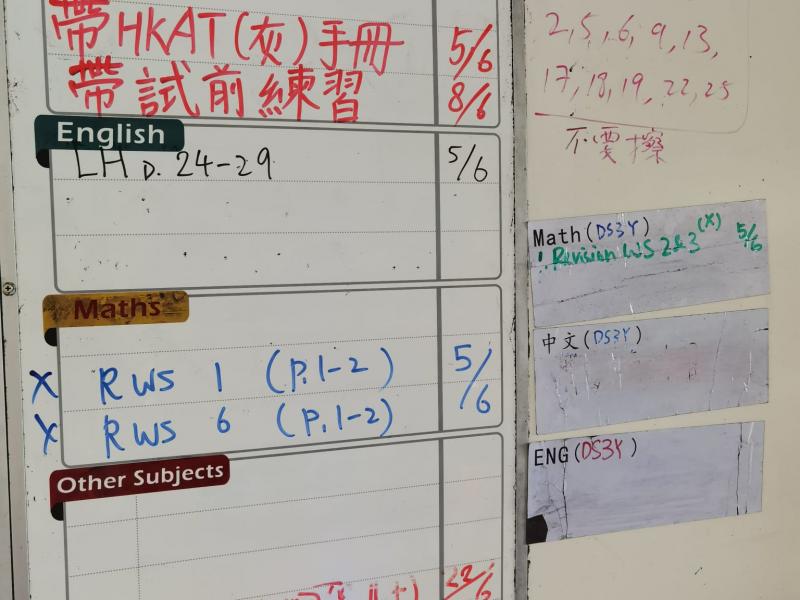 帶HKAT(灰)手冊 5/6
帶試前練習 8/6
English
LH p. 24-29 5/6
Maths
X RWS 1 (P.1-2) 5/6
X RWS 6 (P.1-2)
Other Subjects
22/6
2, 5, 6, 9, 13,
17, 18, 19, 22, 25
不要擦
Math(DS3Y)
Revision WS 2&3 (X) 5/6
中文(DS3Y)
ENG(DS3Y)